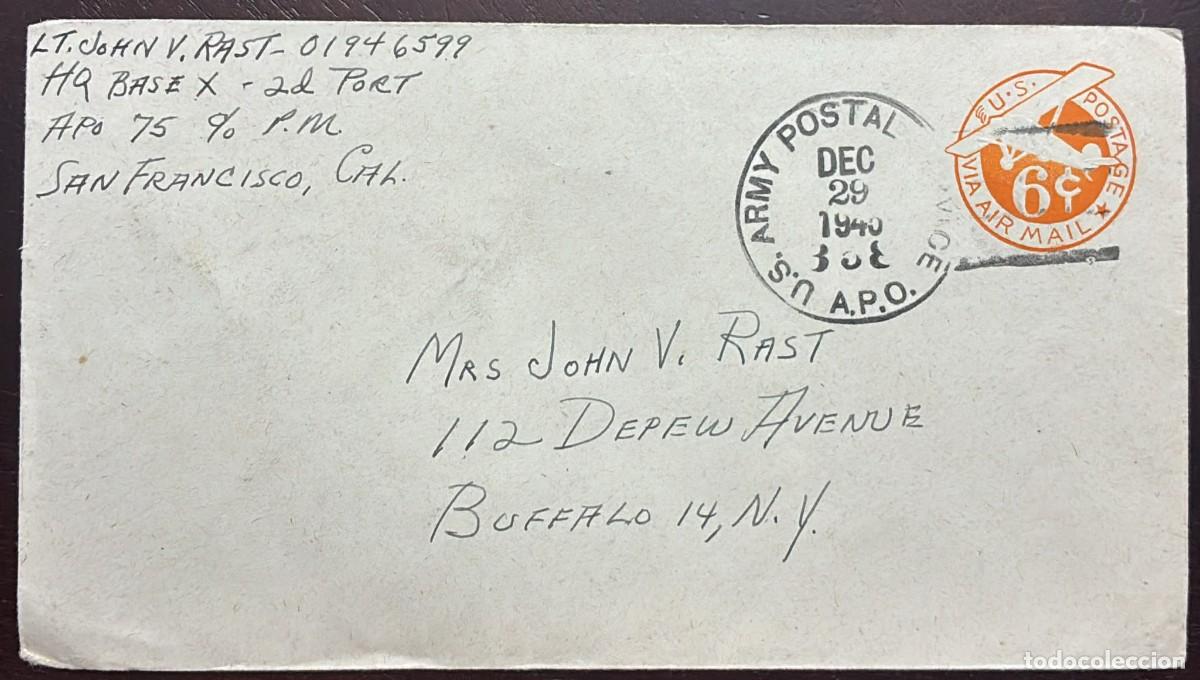 LT. JOHN V. RAST - 01946599
HQ BASE X - 2d PORT
APO 75 c/o P.M.
SAN FRANCISCO, CAL.
U.S. ARMY POSTAL SERVICE
DEC
29
A.P.O.
U.S. POSTAGE
6¢
VIA AIR MAIL
MRS JOHN V. RAST
112 DEPEW AVENUE
BUFFALO 14, N.Y.
todocoleccion